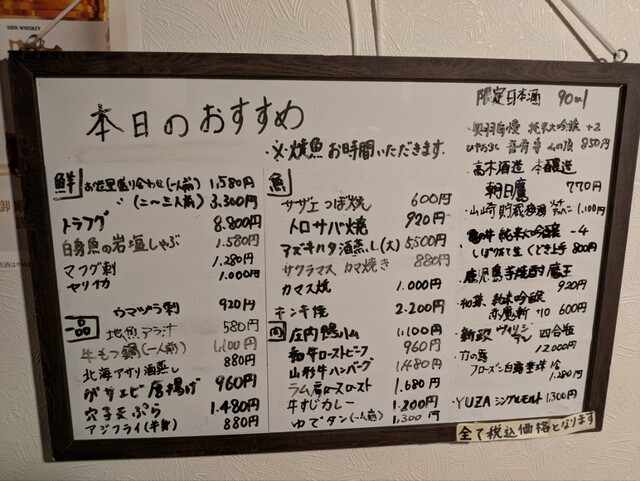 KIRIN WHISKEY
本日のおすすめ
・※焼魚お時間いただきます。
鮮
お造里盛り合わせ(一人前) 1,580円
〃 (二〜三人前) 3,300円
トラフグ 8.800円
白身魚の岩塩しゃぶ 1.580円
マフグ刺 1.280円
ヤリイカ 1.000円
ウマヅラ刺 920円
一品
地魚アラ汁 580円
牛もつ鍋(一人前) 1,100円
北海アサリ酒蒸し 880円
ガサエビ唐揚げ 960円
穴子天ぷら 1.480円
アジフライ(半身) 880円
魚
サザエつぼ焼 600円
トロサバ焼 920円
アズキハタ酒蒸し(大) 5,500円
サクラマスカマ焼き 880円
カマス焼 1.000円
キンキ焼 2.200円
肉
庄内鴨ハム 1,100円
和牛ローストビーフ 960円
山形牛ハンバーグ 1,480円
ラム肩ロースロースト 1.680円
牛すじカレー 1.200円
ゆでタン(一人前) 1,300円
限定日本酒 90ml
・奥羽自慢 純米大吟醸 +2
ひやおろし 吾有事 山の頂 850円
・高木酒造 本醸造
朝日鷹 770円
・山崎貯蔵梅酒 1,100円
純米大吟醸 -4
しぼりたて生 くどき上手 800円
・鹿児島芋焼酎 魔王
920円
・和葉 純米吟醸
赤魔斬 +10 600円
・新政 四合瓶
12000円
・力の露
フローズン白露垂珠
1.280円
・YUZA シングルモルト 1,300円
全て税込価格となります